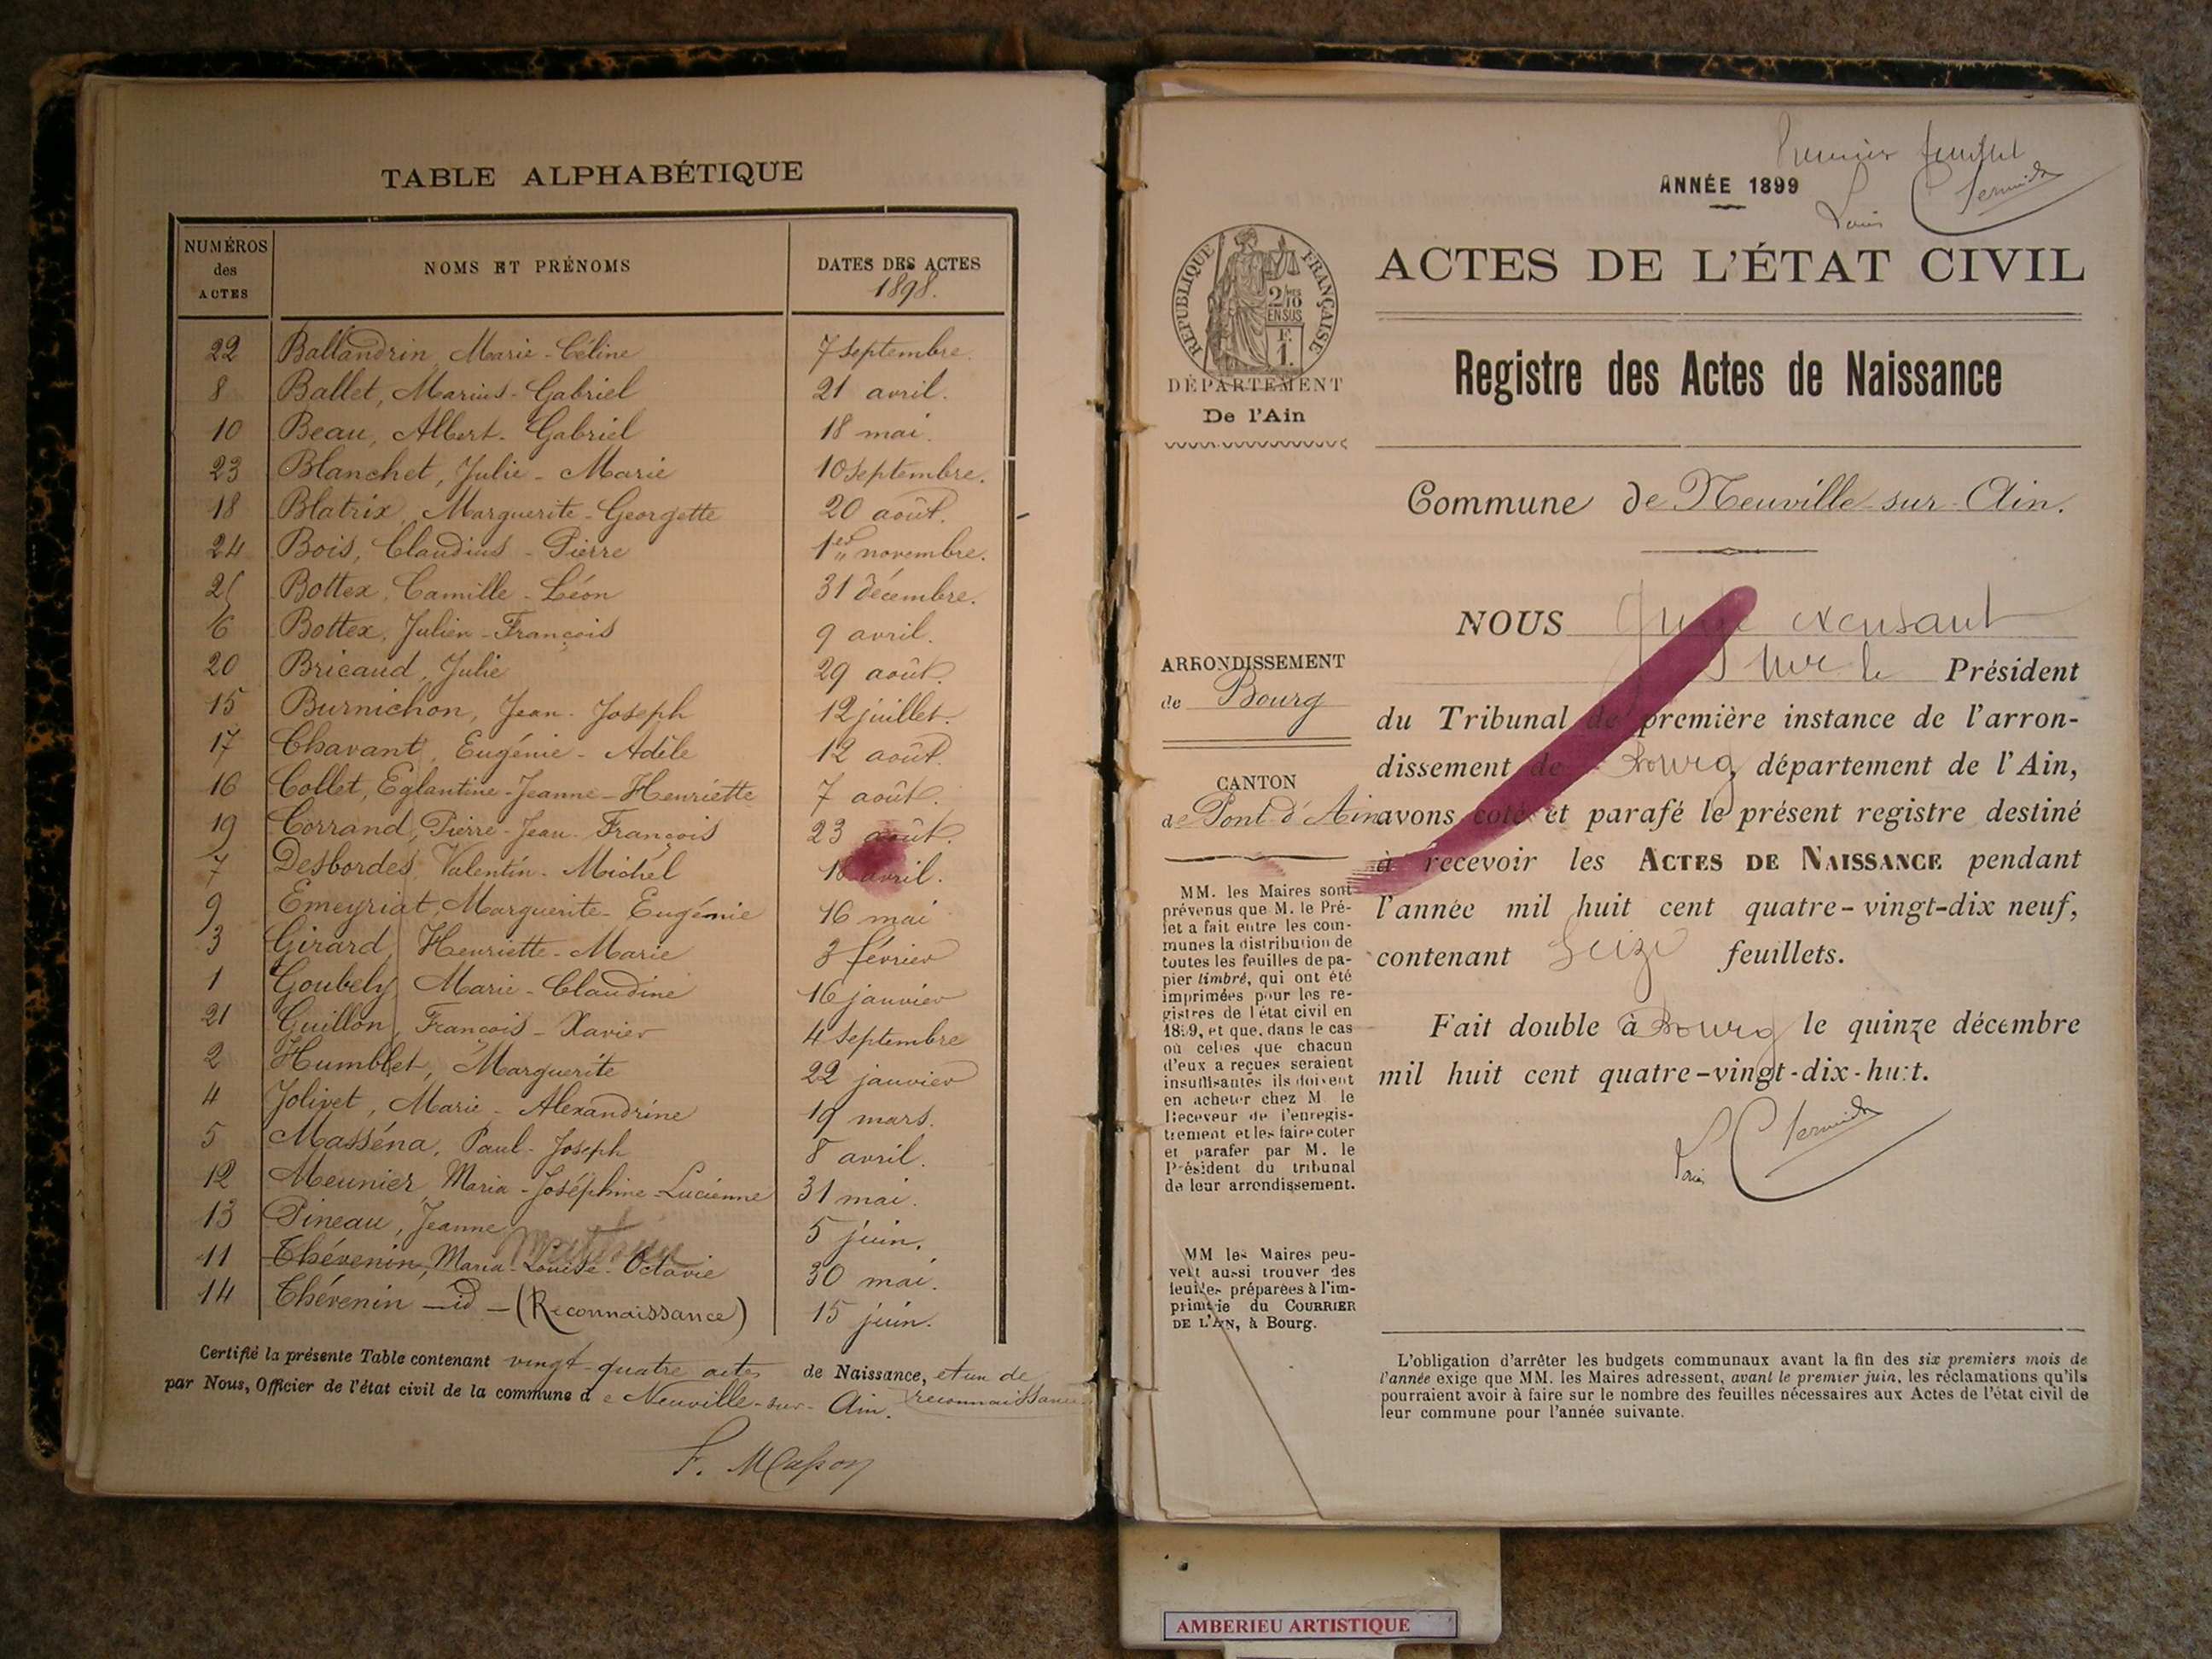 TABLE ALPHABÉTIQUE
NUMÉROS des ACTES
NOMS ET PRÉNOMS
DATES DES ACTES
1898.
22 Ballandrin, Marie-Céline 7 septembre.
8 Ballet, Marius-Gabriel 21 avril.
10 Beau, Albert-Gabriel 18 mai.
23 Blanchet, Julie-Marie 10 septembre.
18 Blatrix, Marguerite-Georgette 20 août.
24 Bois, Claudius-Pierre 1er novembre.
25 Bottex, Camille-Léon 31 décembre.
6 Bottex, Julien-François 9 avril.
20 Bricaud, Julie 29 août.
15 Burnichon, Jean-Joseph 12 juillet.
17 Chavant, Eugénie-Adèle 12 août.
16 Collet, Eglantine-Jeanne-Henriette 7 août.
19 Corrand, Pierre-Jean-François 23 août.
7 Desbordes, Valentin-Michel avril.
9 Emeyriat, Marguerite-Eugénie 16 mai
3 Girard, Henriette-Marie 3 février
1 Goubely, Marie-Claudine 16 janvier
21 Guillon, François-Xavier 4 septembre
2 Humblet, Marguerite 22 janvier
4 Jolivet, Marie-Alexandrine 19 mars.
5 Masséna, Paul-Joseph 8 avril.
12 Meunier, Maria-Joséphine-Lucienne 31 mai.
13 Pineau, Jeanne 5 juin.
11 Thévenin, Maria-Louise-Octavie 30 mai.
14 Thévenin — id — (Reconnaissance) 15 juin.
Certifié la présente Table contenant vingt-quatre actes de Naissance, et un de reconnaissance
par Nous, Officier de l'état civil de la commune de Neuville-sur-Ain.
Premier feuillet
ANNÉE 1899
Louis
ACTES DE L'ÉTAT CIVIL
RÉPUBLIQUE FRANÇAISE
2/10mes
EN SUS
F.
1.
DÉPARTEMENT
De l'Ain
Registre des Actes de Naissance
Commune de Neuville-sur-Ain.
ARRONDISSEMENT
de Bourg
CANTON
de Pont d'Ain
MM. les Maires sont
prévenus que M. le Pré-
fet a fait entre les com-
munes la distribution de
toutes les feuilles de pa-
pier timbré, qui ont été
imprimées pour les re-
gistres de l'état civil en
1899, et que, dans le cas
où celles que chacun
d'eux a reçues seraient
insuffisantes ils doivent
en acheter chez M. le
Receveur de l'enregis-
trement et les faire coter
et parafer par M. le
Président du tribunal
de leur arrondissement.
MM les Maires peu-
vent aussi trouver des
feuilles préparées à l'im-
primerie du COURRIER
DE L'AIN, à Bourg.
NOUS Juge excusant
M le Président
du Tribunal de première instance de l'arron-
dissement de Bourg, département de l'Ain,
avons coté et parafé le présent registre destiné
à recevoir les ACTES DE NAISSANCE pendant
l'année mil huit cent quatre-vingt-dix neuf,
contenant Seize feuillets.
Fait double à Bourg le quinze décembre
mil huit cent quatre-vingt-dix-huit.
Louis
L'obligation d'arrêter les budgets communaux avant la fin des six premiers mois de
l'année exige que MM. les Maires adressent, avant le premier juin, les réclamations qu'ils
pourraient avoir à faire sur le nombre des feuilles nécessaires aux Actes de l'état civil de
leur commune pour l'année suivante.
AMBERIEU ARTISTIQUE